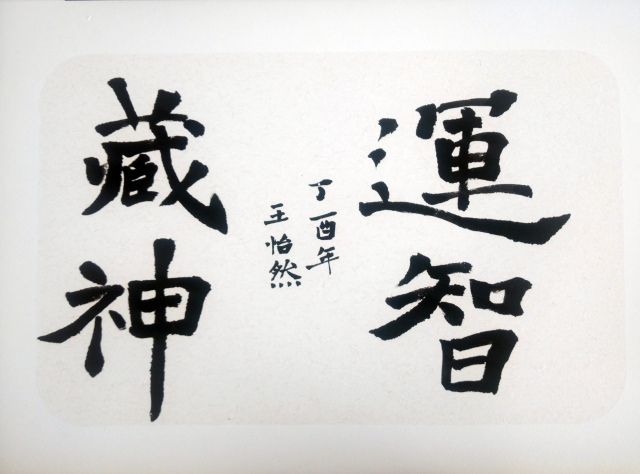 運智
丁酉年
王怡然
藏神